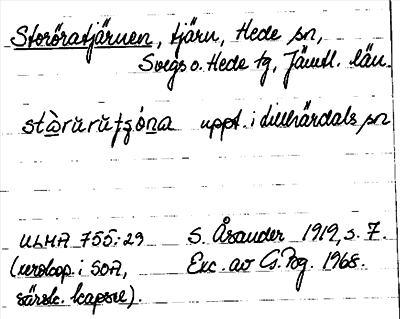 Storöratjärnen, tjärn, Hede sn,
Svegs o. Hede tg, Jämtl. län.
stàrŭrŭtʂóna uppt. i Lillhärdals sn
ULMA 755:29 S. Åsander 1919, s. 7.
(xerokop. i SOA, Exc. av G. Pog. 1968.
särsk. kapsel).